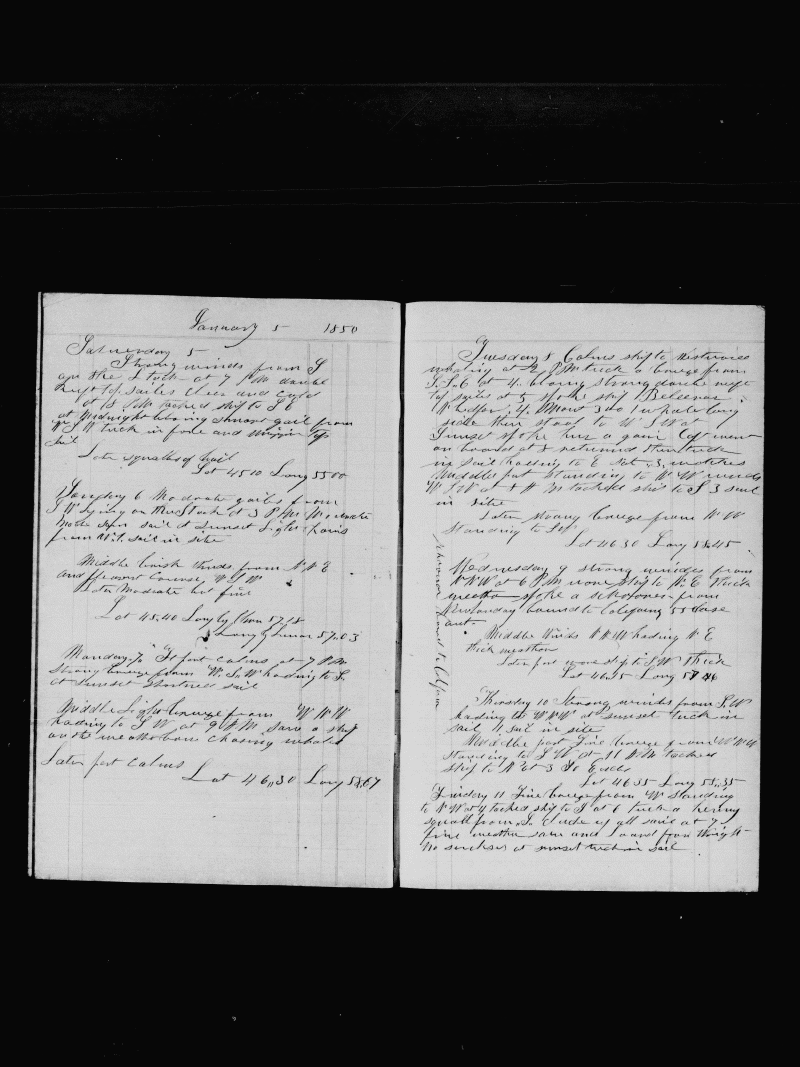 January 5 1850
Saturday 5
Strong winds from S
on the L tack at 7 PM double
reeft top sailes clear and cold
at 8 PM tacked ship to S E
at Midnight blowing smart gail from
W S W tuck in fore and mizzin top
Sail
Later squalls of hail
Lat 45 10 Long 55 00
Sunday 6 Moderate gailes from
S W lying on the Stock at 3 P M Moderate
sail at Sunset Light airs
from sail in site
Middle brisk winds from N N E
and Course W S W
Later Moderate but fine
Lat 45.40 Long by Chron 57.18
Long by Lunar 57.03
Monday 7 first calms at 7 P.M
Strong breeze from W.S.W heading to S.
at sunset Shortned sail
Middle Light breeze from W N W
heading to S W at 9 A M saw a ship
on the weather bow chasing whales
Later part calms
Lat 46,,30 Long 57
Tuesday 8 Calms ship to Westward
whaling at 2 P.M tuck a breeze from
S.S.E at 4 blowing strong double reeft
top sailes at 5 spoke ship
N Bedford 4 Mont 300 1 whale long
side then stood to W S W at
Sunset spoke her a gain Capt went
on board at 8 returned then tuck
in sail heading to E 3
Middle part standing to N W winds
W S W at 4 A M tacked ship to S 3 sail
in site
Later strong breeze from N W
Standing to S W
Lat 46 30 Long 58.45
Wednesday 9 strong windes from
N N W at 6 P M wore ship to N.E. thick
weather spoke a schooner from
bound to Califony 55 dase
out
Middle Winds N N W heading N E
thick weather
Later part wore ship to S.W Thick
Lat 46.25 Long 57 46
schooner bound to Califona
Thursday 10 Strong winds from S.W
heading to W N W at sunset tuck in
sail 11 sail in site
Middle part Fine breeze from W N W
standing to S W at 11 A M tacked
ship to N at 3
Lat 46 35 Long 58,,35
Friday 11 Fine breeze from W Standing
to N W at 4 tacked ship to S at 6 tuck a heavy
squall from S. of all sail at 7
fine weather saw and
no suckses at sunset tuck in sail